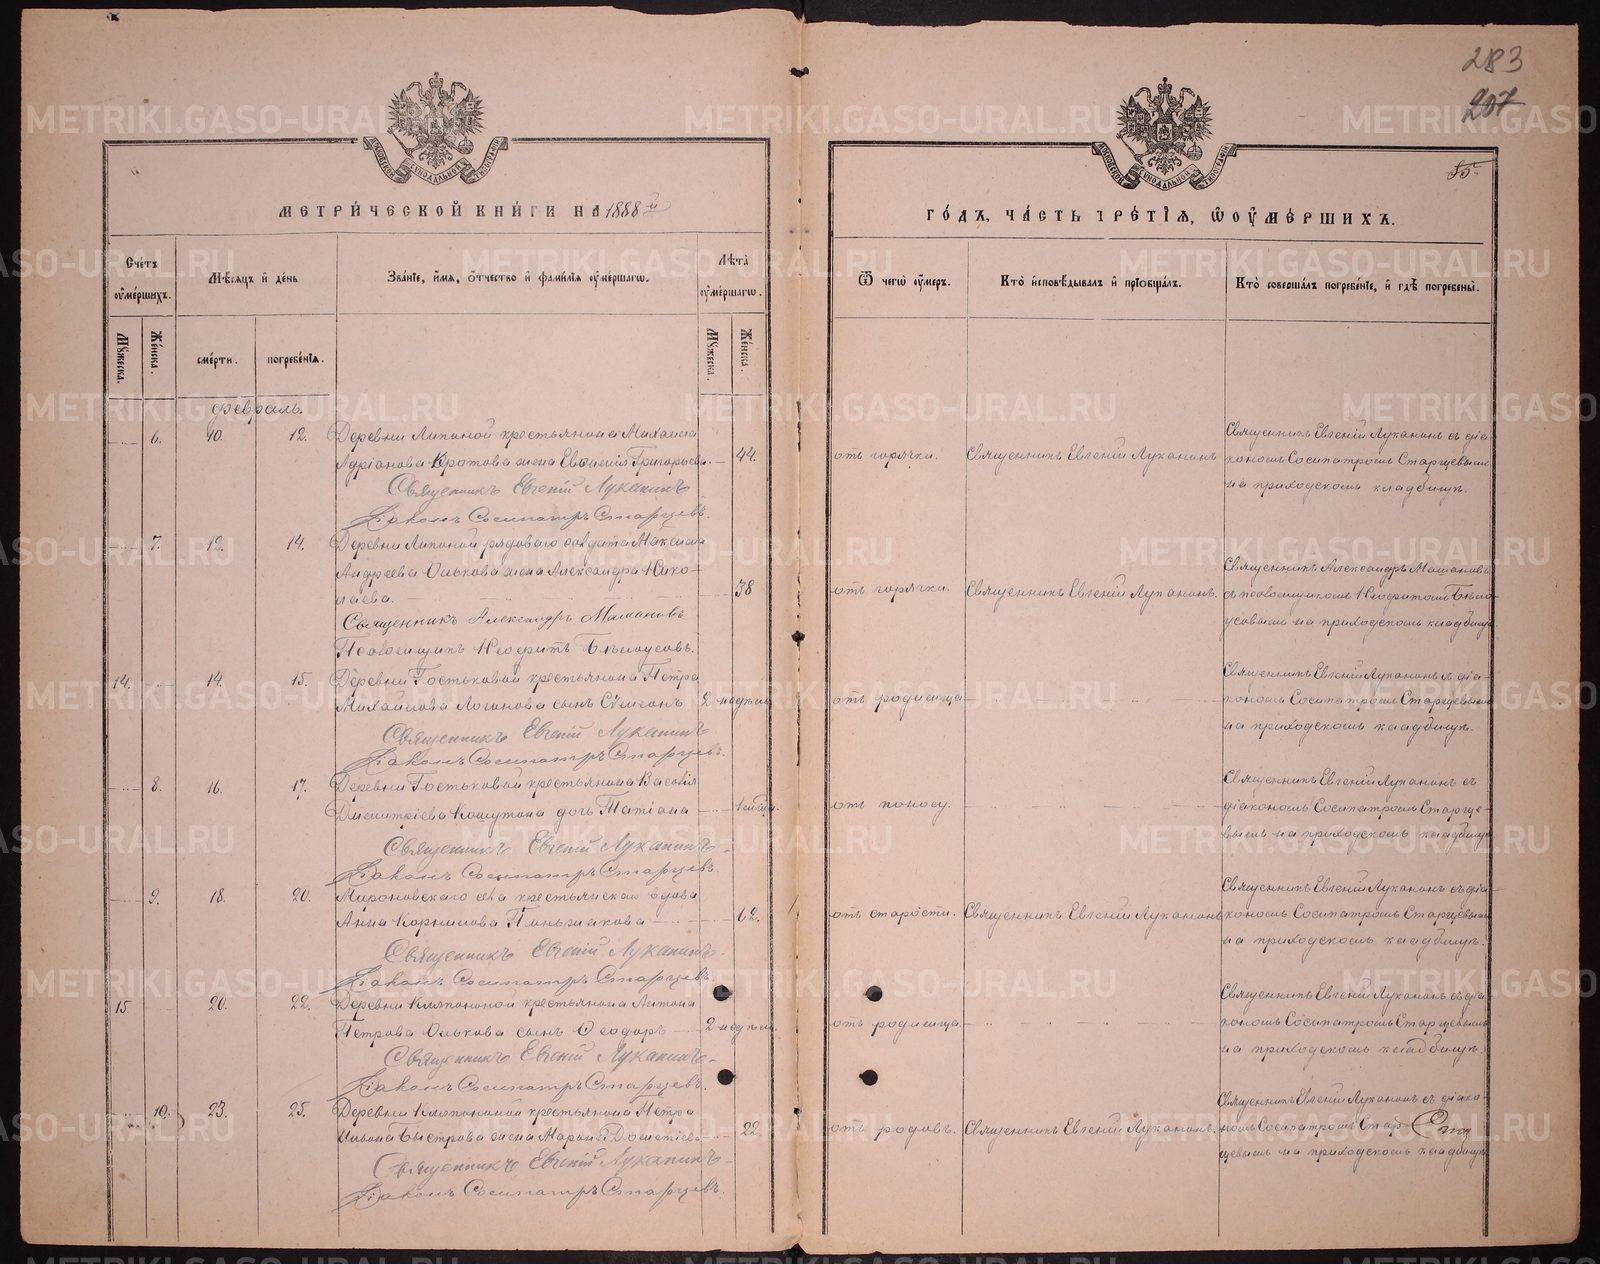 283
207
55
МЕТРИЧЕСКОЙ КНИГИ НА 1888й
ГОДЪ, ЧАСТЬ ТРЕТІЯ, Ѿ ОУМЕРШИХЪ.
Счетъ оумершихъ.
Мѣсяцъ и день
Званіе, имя, отчество и фамилія оумершагѡ.
Лѣта оумершагѡ.
Ѿ чегѡ оумеръ.
Кто исповѣдывалъ и пріобщалъ.
Кто совершалъ погребеніе, и гдѣ погребены.
Мужеска.
Женска.
смерти.
погребенія.
Мужеска.
Женска.
Февраль.
6. 10. 12. Деревни Липиной крестьянина Михаила
Адріанова Кротова жена Евѳимія Григорьева 44.
Священникъ Евгеній Луканинъ
Діаконъ Сосипатръ Старцевъ.
отъ горячки.
Священникъ Евгеній Луканинъ
Священникъ Евгеній Луканинъ съ діа-
кономъ Сосипатромъ Старцевымъ
на приходскомъ кладбищѣ.
7. 12. 14. Деревни Липиной рядоваго солдата Максима
Андреева Олькова жена Александра Нико-
лаева. 38
Священникъ Александръ Мамановъ
Псаломщикъ Неофитъ Бѣлоусовъ.
отъ горячки.
Священникъ Евгеній Луканинъ.
Священникъ Александръ Мамановъ
съ псаломщикомъ Неофитомъ Бѣло-
усовымъ на приходскомъ кладбищѣ
14. 14. 15. Деревни Гостьковой крестьянина Петра
Михайлова Логинова сынъ Сѵмеонъ 2 недѣль
Священникъ Евгеній Луканинъ
Діаконъ Сосипатръ Старцевъ.
отъ родимца
Священникъ Евгеній Луканинъ съ діа-
кономъ Сосипатромъ Старцевымъ
на приходскомъ кладбищѣ.
8. 16. 17. Деревни Гостьковой крестьянина Василія
Димитріева Кошутина дочь Татіана 1 мѣсяца.
Священникъ Евгеній Луканинъ
Діаконъ Сосипатръ Старцевъ.
отъ поносу.
Священникъ Евгеній Луканинъ съ
діакономъ Сосипатромъ Старце-
вымъ на приходскомъ кладбищѣ
9. 18. 20. Мироновскаго села крестьянская вдова
Анна Корнилова Паньшикова 62.
Священникъ Евгеній Луканинъ
Діаконъ Сосипатръ Старцевъ.
отъ старости.
Священникъ Евгеній Луканинъ
Священникъ Евгеній Луканинъ съ діа-
кономъ Сосипатромъ Старцевымъ
на приходскомъ кладбищѣ.
15. 20. 22. Деревни Кляпониной крестьянина Антона
Петрова Олькова сынъ Ѳеодоръ 2 недѣль
Священникъ Евгеній Луканинъ
Діаконъ Сосипатръ Старцевъ.
отъ родимца.
Священникъ Евгеній Луканинъ съ діа-
кономъ Сосипатромъ Старцевымъ
на приходскомъ кладбищѣ.
10. 23. 25. Деревни Кляпониной крестьянина Петра
Быстрова жена Марѳа 22.
Священникъ Евгеній Луканинъ
Діаконъ Сосипатръ Старцевъ.
отъ родовъ.
Священникъ Евгеній Луканинъ.
Священникъ Евгеній Луканинъ съ діако-
номъ Сосипатромъ Стар-
цевымъ на приходскомъ кладбищѣ